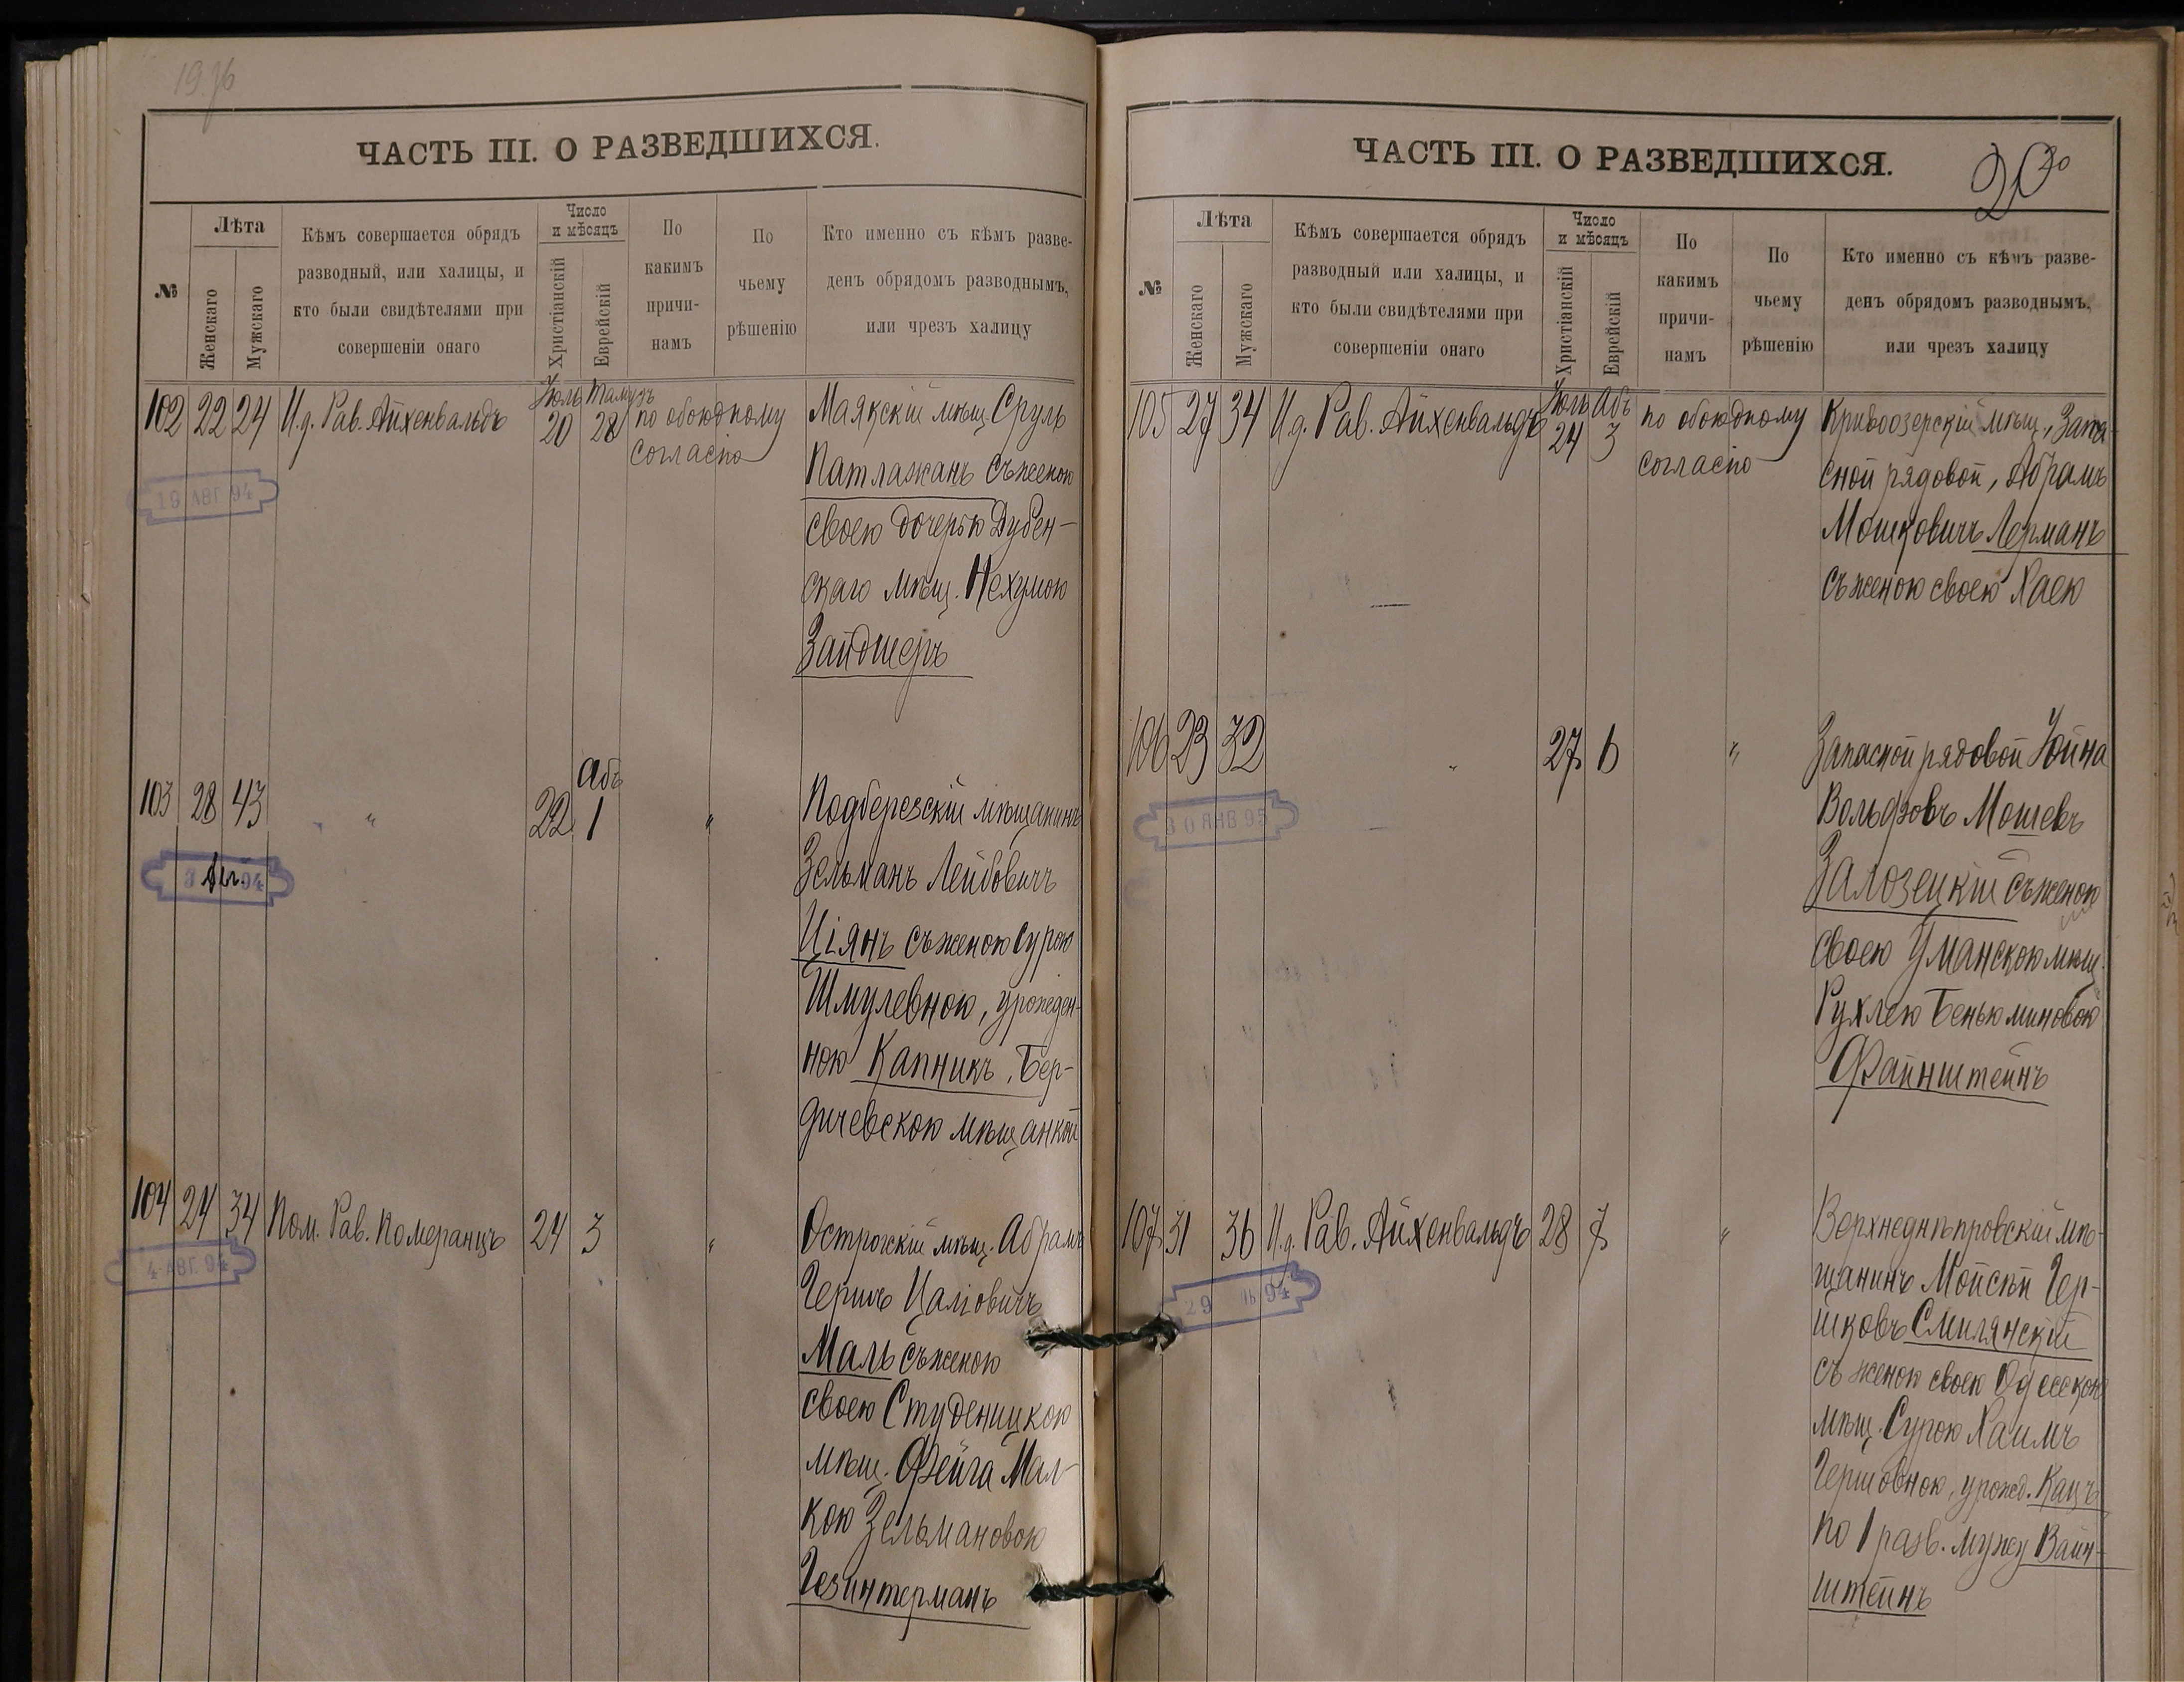 ЧАСТЬ III. О РАЗВЕДШИХСЯ.
№
Лѣта
Женскаго
Мужскаго
Кѣмъ совершается обрядъ
разводный, или халицы, и
кто были свидѣтелями при
совершеніи онаго
Число
и мѣсяцъ
Христіанскій
Еврейскій
По
какимъ
причи-
намъ
По
чьему
рѣшенію
Кто именно съ кѣмъ разве-
денъ обрядомъ разводнымъ,
или чрезъ халицу
102 22 24 И.д. Рав. Айхенвальдъ
Іюль Тамузъ
20 28
по обоюдному
согласію
Маякскій мѣщ. Сруль
Патлажанъ съ женою
своею дочерью Дубен-
скаго мѣщ. Нехумою
Зайдшеръ
19 АВГ. 94
103 28 43 "
Абъ
22 1 "
Подберезскій мѣщанинъ
Зельманъ Лейбовичъ
Ціянъ съ женою Сурою
Шмулевною, урожден-
ною Капникъ, Бер-
дичевскою мѣщанкой
3 Авг. 94
104 24 34 Пом. Рав. Померанцъ 24 3 "
Острожскій мѣщ. Абрамъ
Гершъ Цаліовичъ
Маль съ женою
своею Студеницкою
мѣщ. Фейга Мал-
кою Зельмановою
Гезинтерманъ
4 АВГ. 94
ЧАСТЬ III. О РАЗВЕДШИХСЯ.
20
№
Лѣта
Женскаго
Мужскаго
Кѣмъ совершается обрядъ
разводный или халицы, и
кто были свидѣтелями при
совершеніи онаго
Число
и мѣсяцъ
Христіанскій
Еврейскій
По
какимъ
причи-
намъ
По
чьему
рѣшенію
Кто именно съ кѣмъ разве-
денъ обрядомъ разводнымъ,
или чрезъ халицу
105 27 34 И.д. Рав. Айхенвальдъ
Іюль Абъ
24 3
по обоюдному
согласію
Кривоозерскій мѣщ., Запа-
сной рядовой, Абрамъ
Мошковичъ Лерманъ
съ женою своею Хаею
106 23 32 " 27 6 "
Запасной рядовой Іойна
Вольфовъ Мошевъ
Залозецкій съ женою
своею Уманскою мѣщ.
Рухлею Беньюминовою
Файнштейнъ
30 ЯНВ 95
107 31 36 И.д. Рав. Айхенвальдъ 28 7 "
Верхнеднѣпровскій мѣ-
щанинъ Мойсей Гер-
шковъ Смилянскій
съ женою своею Одесскою
мѣщ. Сурою Хаимъ
Гершовною, урожд. Кацъ
по 1 разв. мужу Вайн-
штейнъ
29 94